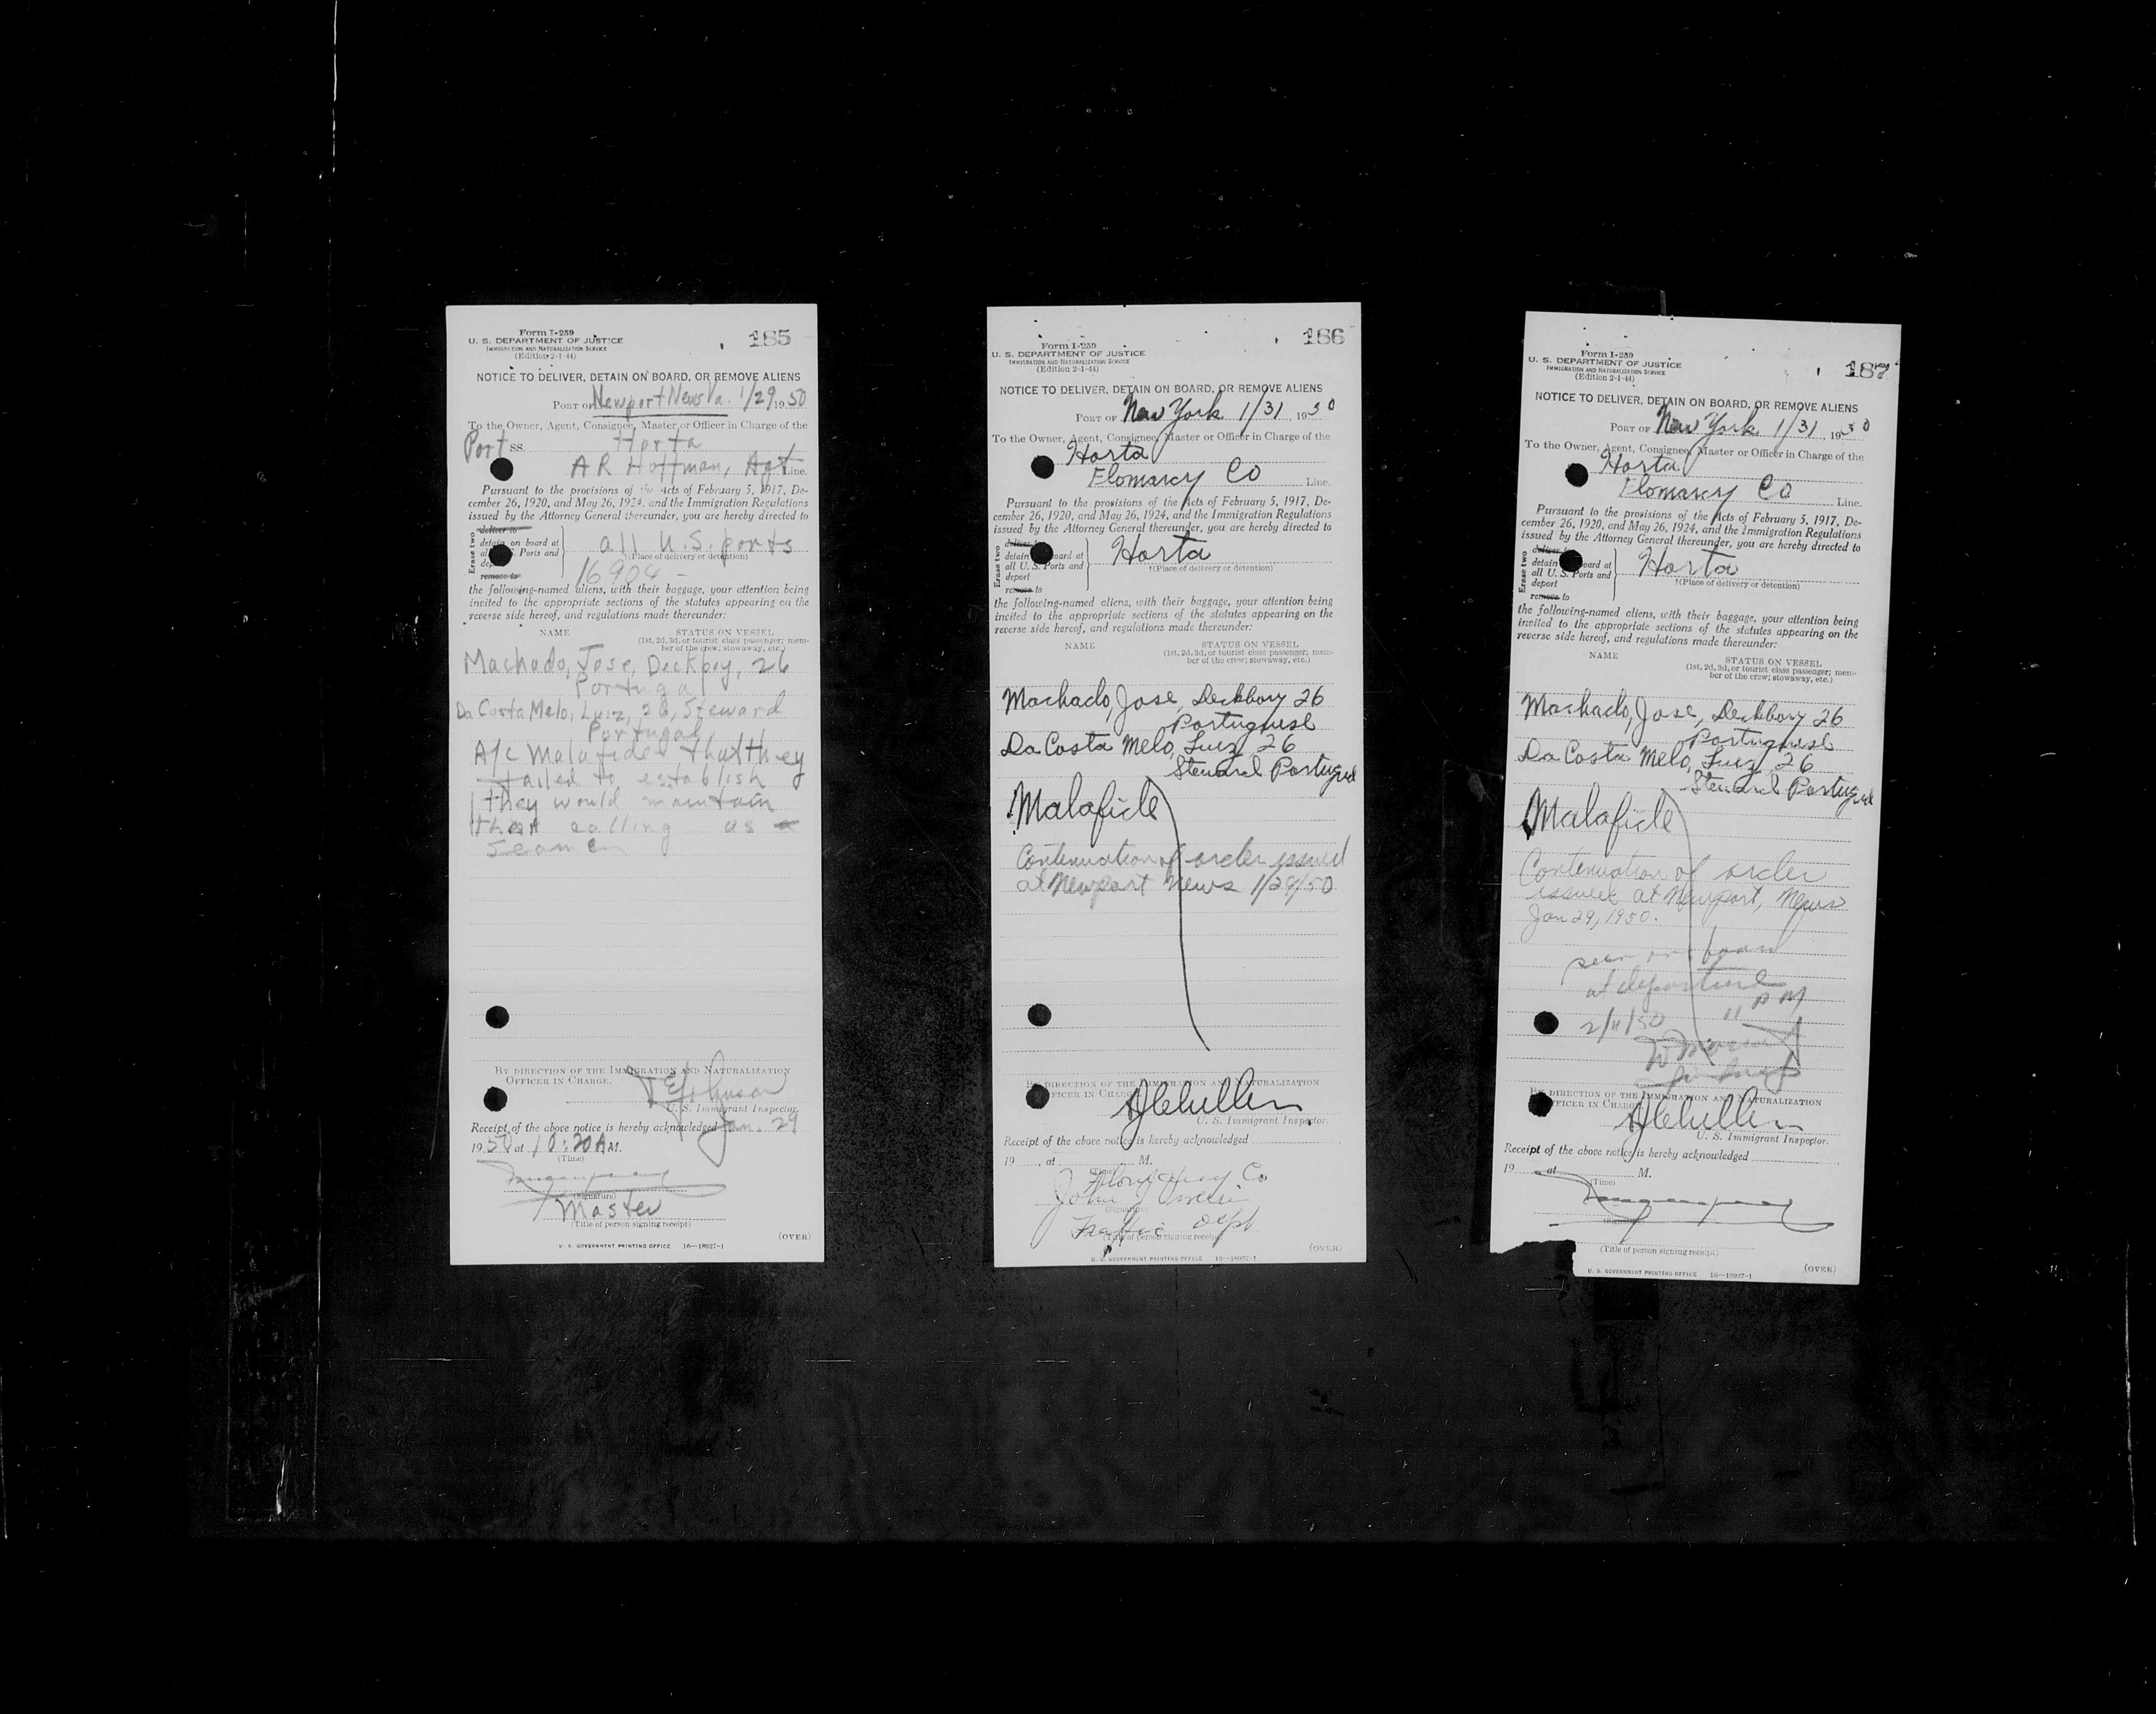 Form I-259
U. S. DEPARTMENT OF JUSTICE
IMMIGRATION AND NATURALIZATION SERVICE
(Edition 2-1-44)
185
NOTICE TO DELIVER, DETAIN ON BOARD, OR REMOVE ALIENS
PORT OF Newport News Va. 1/29 1950
To the Owner, Agent, Consignee, Master or Officer in Charge of the
Port SS. Horta
A R Hoffman, Agt Line.
Pursuant to the provisions of the Acts of February 5, 1917, De-
cember 26, 1920, and May 26, 1924, and the Immigration Regulations
issued by the Attorney General thereunder, you are hereby directed to
Erase two
deliver to
detain on board at
all U. S. Ports and
remove to
all U.S. ports
†(Place of delivery or detention)
16904 -
the following-named aliens, with their baggage, your attention being
invited to the appropriate sections of the statutes appearing on the
reverse side hereof, and regulations made thereunder:
NAME STATUS ON VESSEL
(1st, 2d, 3d, or tourist class passenger; mem-
ber of the crew; stowaway, etc.)
Machado, Jose, Deckboy, 26
Portugal
Da Costa Melo, Luiz, 26, Steward
Portugal
A/c Malafide that they
failed to establish
they would maintain
their calling as
seamen
BY DIRECTION OF THE IMMIGRATION AND NATURALIZATION
OFFICER IN CHARGE.
Johnson
U. S. Immigrant Inspector.
Receipt of the above notice is hereby acknowledged Jan. 29
1950 at 10:20 A M.
(Time)
(Signature)
Master
(Title of person signing receipt)
(OVER)
U. S. GOVERNMENT PRINTING OFFICE 16—18927-1
Form I-259
U. S. DEPARTMENT OF JUSTICE
IMMIGRATION AND NATURALIZATION SERVICE
(Edition 2-1-44)
186
NOTICE TO DELIVER, DETAIN ON BOARD, OR REMOVE ALIENS
PORT OF New York 1/31 1950
To the Owner, Agent, Consignee, Master or Officer in Charge of the
Horta
Flomarcy Co Line.
Pursuant to the provisions of the Acts of February 5, 1917, De-
cember 26, 1920, and May 26, 1924, and the Immigration Regulations
issued by the Attorney General thereunder, you are hereby directed to
Erase two
detain board at
all U. S. Ports and
deport
remove to
Horta
†(Place of delivery or detention)
the following-named aliens, with their baggage, your attention being
invited to the appropriate sections of the statutes appearing on the
reverse side hereof, and regulations made thereunder:
NAME STATUS ON VESSEL
(1st, 2d, 3d, or tourist class passenger; mem-
ber of the crew; stowaway, etc.)
Machado, Jose, Deckboy 26
Portuguese
Da Costa Melo, Luiz 26
Steward Portugal
Malafide
Contenuation of order issued
at Newport News 1/29/50
BY DIRECTION OF THE IMMIGRATION AND NATURALIZATION
OFFICER IN CHARGE
U. S. Immigrant Inspector.
Receipt of the above notice is hereby acknowledged
19 , at M.
(Time)
Flomarcy Co
John J
(Signature)
Traffic Dept
(Title of person signing receipt)
(OVER)
U. S. GOVERNMENT PRINTING OFFICE 16—18927-1
Form I-259
U. S. DEPARTMENT OF JUSTICE
IMMIGRATION AND NATURALIZATION SERVICE
(Edition 2-1-44)
187
NOTICE TO DELIVER, DETAIN ON BOARD, OR REMOVE ALIENS
PORT OF New York 1/31 1950
To the Owner, Agent, Consignee, Master or Officer in Charge of the
Horta
Flomarcy Co Line.
Pursuant to the provisions of the Acts of February 5, 1917, De-
cember 26, 1920, and May 26, 1924, and the Immigration Regulations
issued by the Attorney General thereunder, you are hereby directed to
Erase two
deliver to
detain board at
all U. S. Ports and
deport
remove to
Horta
†(Place of delivery or detention)
the following-named aliens, with their baggage, your attention being
invited to the appropriate sections of the statutes appearing on the
reverse side hereof, and regulations made thereunder:
NAME STATUS ON VESSEL
(1st, 2d, 3d, or tourist class passenger; mem-
ber of the crew; stowaway, etc.)
Machado, Jose, Deckboy 26
Portuguese
Da Costa Melo, Luiz 26
Steward Portugal
Malafide
Contenuation of order
issued at Newport, News
Jan 29, 1950.
seen on board
at departure
2/4/50 11 PM
BY DIRECTION OF THE IMMIGRATION AND NATURALIZATION
OFFICER IN CHARGE
U. S. Immigrant Inspector.
Receipt of the above notice is hereby acknowledged
19 at M.
(Time)
(Signature)
(Title of person signing receipt)
(OVER)
U. S. GOVERNMENT PRINTING OFFICE 16—18927-1